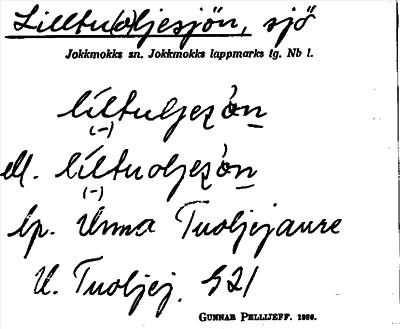 Lilltu(o)ljesjön, sjö
Jokkmokks sn. Jokkmokks lappmarks tg. Nb l.
líltuljeʒòn
(-)
ell. líltuoljeʒòn
(-)
lp. Unna Tuoljejaure
U. Tuoljej. 521
GUNNAR PELLIJEFF. 1956.